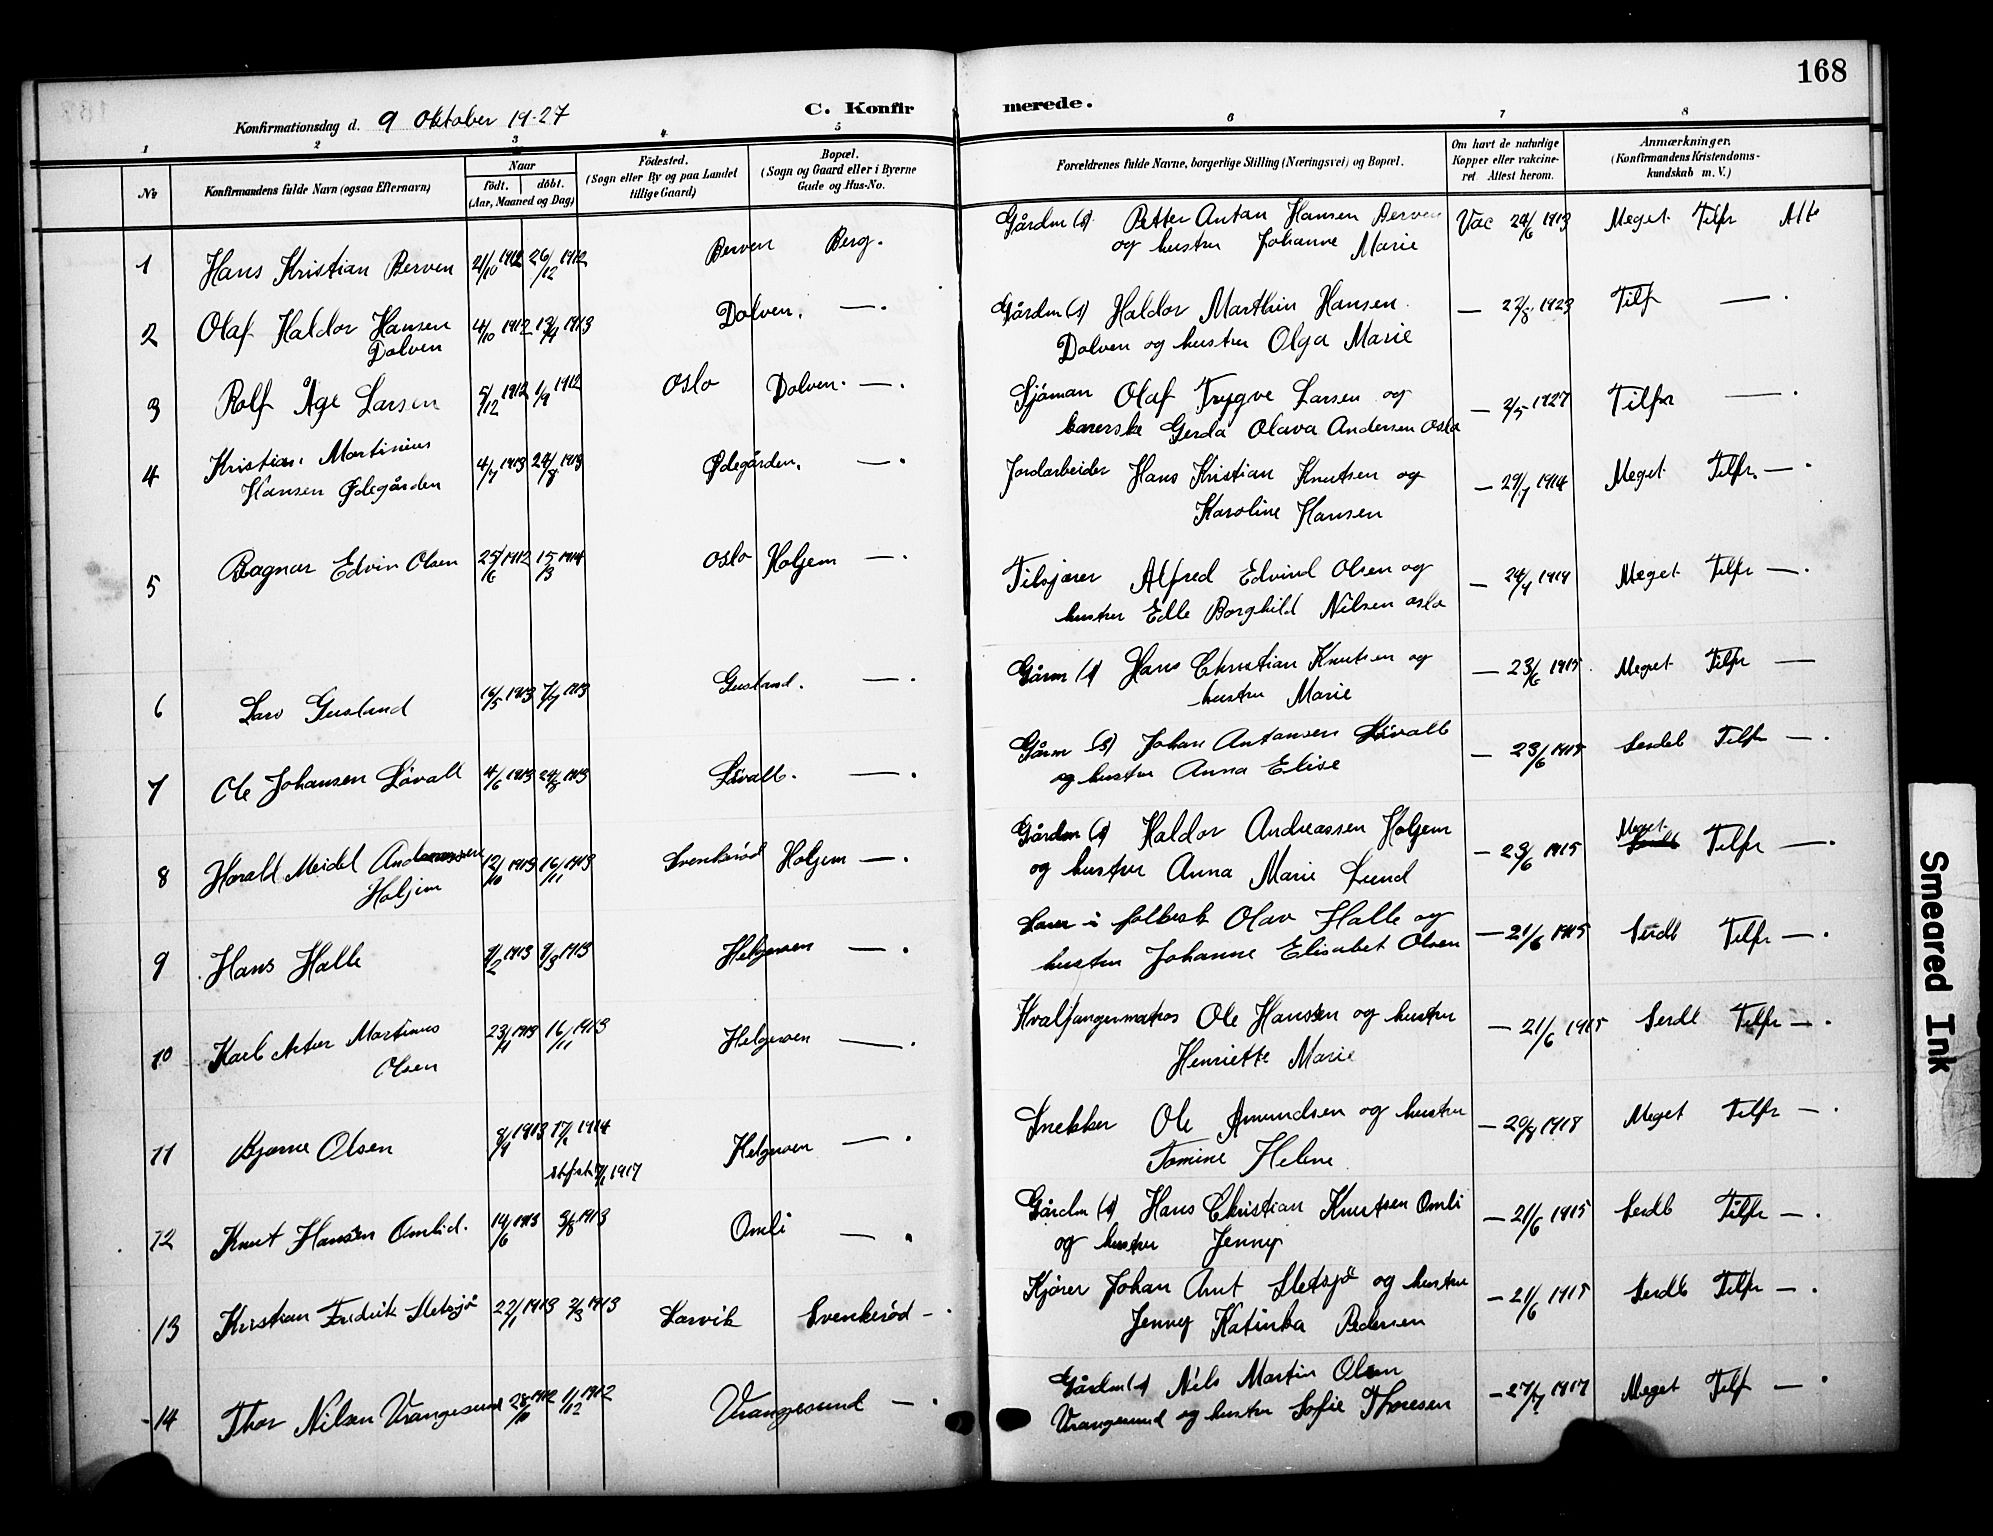 168
C. Konfirmerede.
Konfirmationsdag d. 9 Oktober 1927
1 2 3 4 5 6 7 8
No
Konfirmandens fulde Navn (ogsaa Efternavn)
Naar
født. døbt.
(Aar, Maaned og Dag)
Fødested.
(Sogn eller By og paa Landet
tillige Gaard)
Bopæl.
(Sogn og Gaard eller i Byerne
Gade og Hus-No.
Forældrenes fulde Navne, borgerlige Stilling (Næringsvei) og Bopæl.
Om havt de naturlige
Kopper eller vakcine-
ret Attest herom.
Anmærkninger.
(Konfirmandens Kristendoms-
kundskab m. V.)
1 Hans Kristian Berven 21/10 1912 26/12 1912 Berven Berg. Gårdm (s) Petter Antan Hansen Berven Vac 24/6 1913 Meget Tilfr Alt
og hustru Johanne Marie
2 Olaf Haldor Hansen 4/10 1912 13/4 1913 Dolven. — . Gårdm (s) Haldor Marthin Hansen — 22/8 1923 Tilf — .
Dolven Dolven og hustru Olga Marie
3 Rolf Åge Larsen 5/12 1912 1/9 1912 Oslo Dolven. — . Sjöman Olaf Trygve Larsen og — 2/5 1927 Tilfr — .
Gerda Olava Andersen Oslo
4 Kristian Martinius 4/7 1913 24/8 1913 Ødegården. — . Jordarbeider Hans Kristian Knutsen og — 29/7 1914 Meget Tilfr. — .
Hansen Ødegården Karoline Hansen
5 Ragnar Edvin Olsen 25/6 1912 15/3 1914 Oslo Holjem — . Alfred Edvind Olsen og — 24/4 1919 Meget Tilfr — .
hustru Edle Borghild Nilsen oslo
6 Lars Gusland 16/5 1913 7/7 1913 Gusland. — . Gårm (s) Hans Christian Knutsen og — 23/6 1915. Meget Tilfr —
hustru Marie
7 Ole Johansen Løvall 4/6 1913 24/8 1913 Løvall. — . Gårm (s) Johan Antonsen Løvall — 23/6 1915 Serdel Tilfr — .
og hustru Anna Elise
8 Harald Meidel Andreassen 12/10 1913 16/11 1913 Svenkerød Holjem — . Gårdm (s) Haldor Andreassen Holjem — 23/6 1915 Meget Tilfr — .
Holjem og hustru Anna Marie Lund
9 Hans Halle 9/2 1913 9/3 1913 Helgeroen — . Lærer i folkesk Olav Halle og — 21/6 1915 Serdl Tilfr — .
hustru Johanne Elisabet Olsen
10 Karl Artur Martinus 16/11 1913 Helgeroen — . Hvalfangermatros Ole Hansen og hustru — 21/6 1915 Serdl Tilfr — .
Olsen Henriette Marie
11 Bjarne Olsen 1913 1914 Helgeroen — . Snekker Ole Amundsen og hustru — 20/8 1918 Meget Tilfr — .
1917 Tomine Helene
12 Knut Hansen Omlid. 14/6 1913 3/8 1913 Omli — . Gårdm (s) Hans Christian Knutsen Omli — 21/6 1915 Serdl Tilfr — .
og hustru Jenny
13 Kristian Fredrik Sletsjø 22/1 1913 2/3 1913 Larvik Svenkerød — . Kjører Johan Arnt Sletsjø og hustru — 21/6 1915 Serdl Tilfr — .
Jenny Katinka Pedersen
14 Thor Nilsen Vrangesund 28/10 1912 1/12 1912 Vrangesund — . Gårdm (s) Nils Martin Olsen — 27/7 1917 Meget Tilf — .
Vrangesund og hustru Sofie Thoresen
Smeared Ink